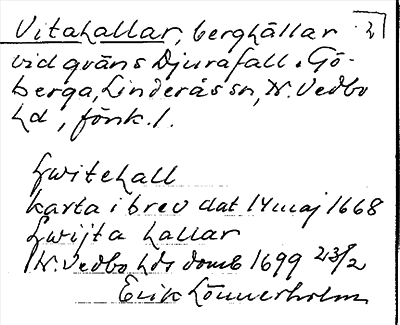 Vitahallar, berghällar 2)
vid gräns Djurafall. Gö-
berga, Linderås sn, N. Vedbo
hd, fönk. l.
Hwitehall
karta i brev dat 14 maj 1668
Hwijta hallar
N. Vedbo hds domb 1699 23/2
Erik Lönnerholm